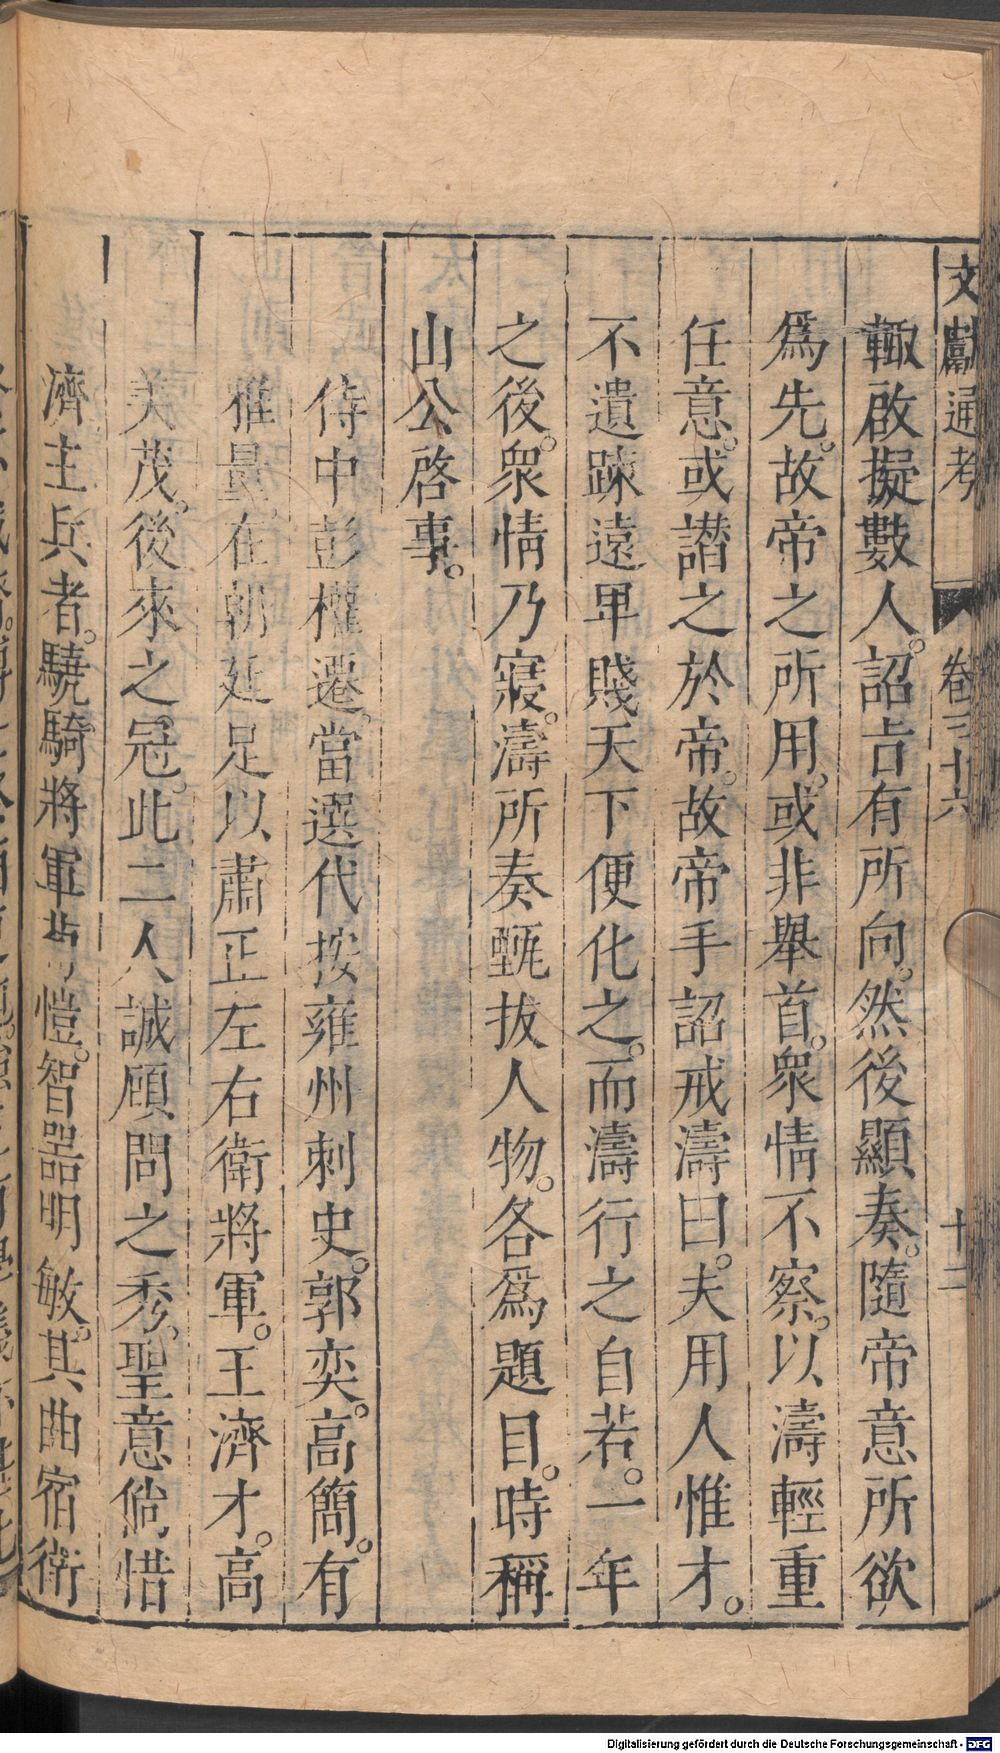 文獻通考 卷三十六 十二
輙啟擬數人。詔旨有所向。然後顯奏。隨帝意所欲
爲先。故帝之所用。或非舉首。衆情不察。以濤輕重
任意。或譖之於帝。故帝手詔戒濤曰。夫用人惟才。
不遺踈遠卑賤天下便化之。而濤行之自若。一年
之後。衆情乃寢。濤所奏甄拔人物。各爲題目。時稱
山公啓事。
侍中彭權遷。當選代按雍州刺史。郭奕。高簡。有
雅量。在朝廷足以肅正左右衛將軍。王濟才。高
美茂。後來之冠。此二人誠顧問之秀。聖意倘惜
濟主兵者。驍騎將軍 愷。智器明敏。其曲宿衛
Digitalisierung gefördert durch die Deutsche Forschungsgemeinschaft - DFG